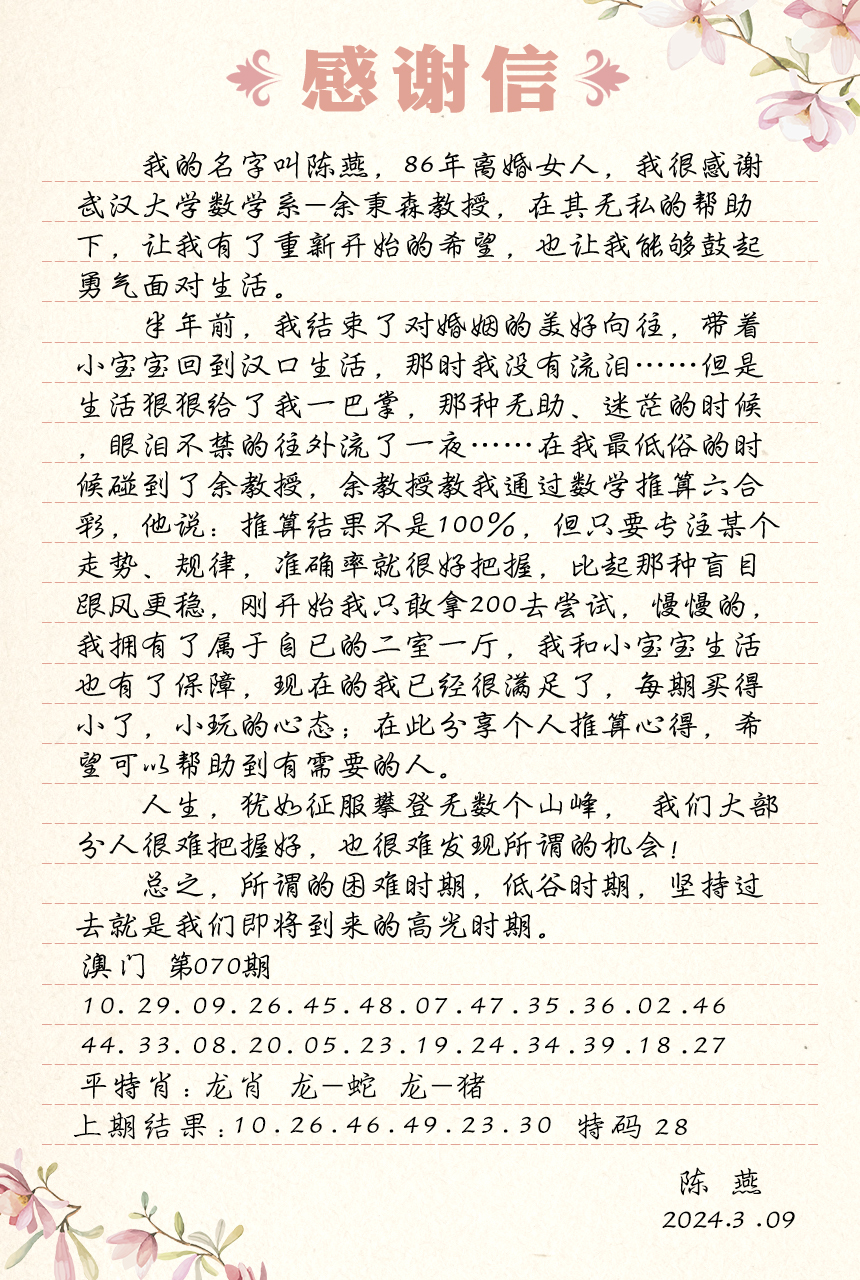 感谢信
我的名字叫陈燕，86年离婚女人，我很感谢
武汉大学数学系—余秉森教授，在其无私的帮助
下，让我有了重新开始的希望，也让我能够鼓起
勇气面对生活。
半年前，我结束了对婚姻的美好向往，带着
小宝宝回到汉口生活，那时我没有流泪……但是
生活狠狠给了我一巴掌，那种无助、迷茫的时候
，眼泪不禁的往外流了一夜……在我最低俗的时
候碰到了余教授，余教授教我通过数学推算六合
彩，他说：推算结果不是100%，但只要专注某个
走势、规律，准确率就很好把握，比起那种盲目
跟风更稳，刚开始我只敢拿200去尝试，慢慢的，
我拥有了属于自已的二室一厅，我和小宝宝生活
也有了保障，现在的我已经很满足了，每期买得
小了，小玩的心态；在此分享个人推算心得，希
望可以帮助到有需要的人。
人生，犹如征服攀登无数个山峰， 我们大部
分人很难把握好，也很难发现所谓的机会！
总之，所谓的困难时期，低谷时期，坚持过
去就是我们即将到来的高光时期。
澳门 第070期
10.29.09.26.45.48.07.47.35.36.02.46
44.33.08.20.05.23.19.24.34.39.18.27
平特肖：龙肖 龙—蛇 龙—猪
上期结果：10.26.46.49.23.30 特码 28
陈 燕
2024.3.09